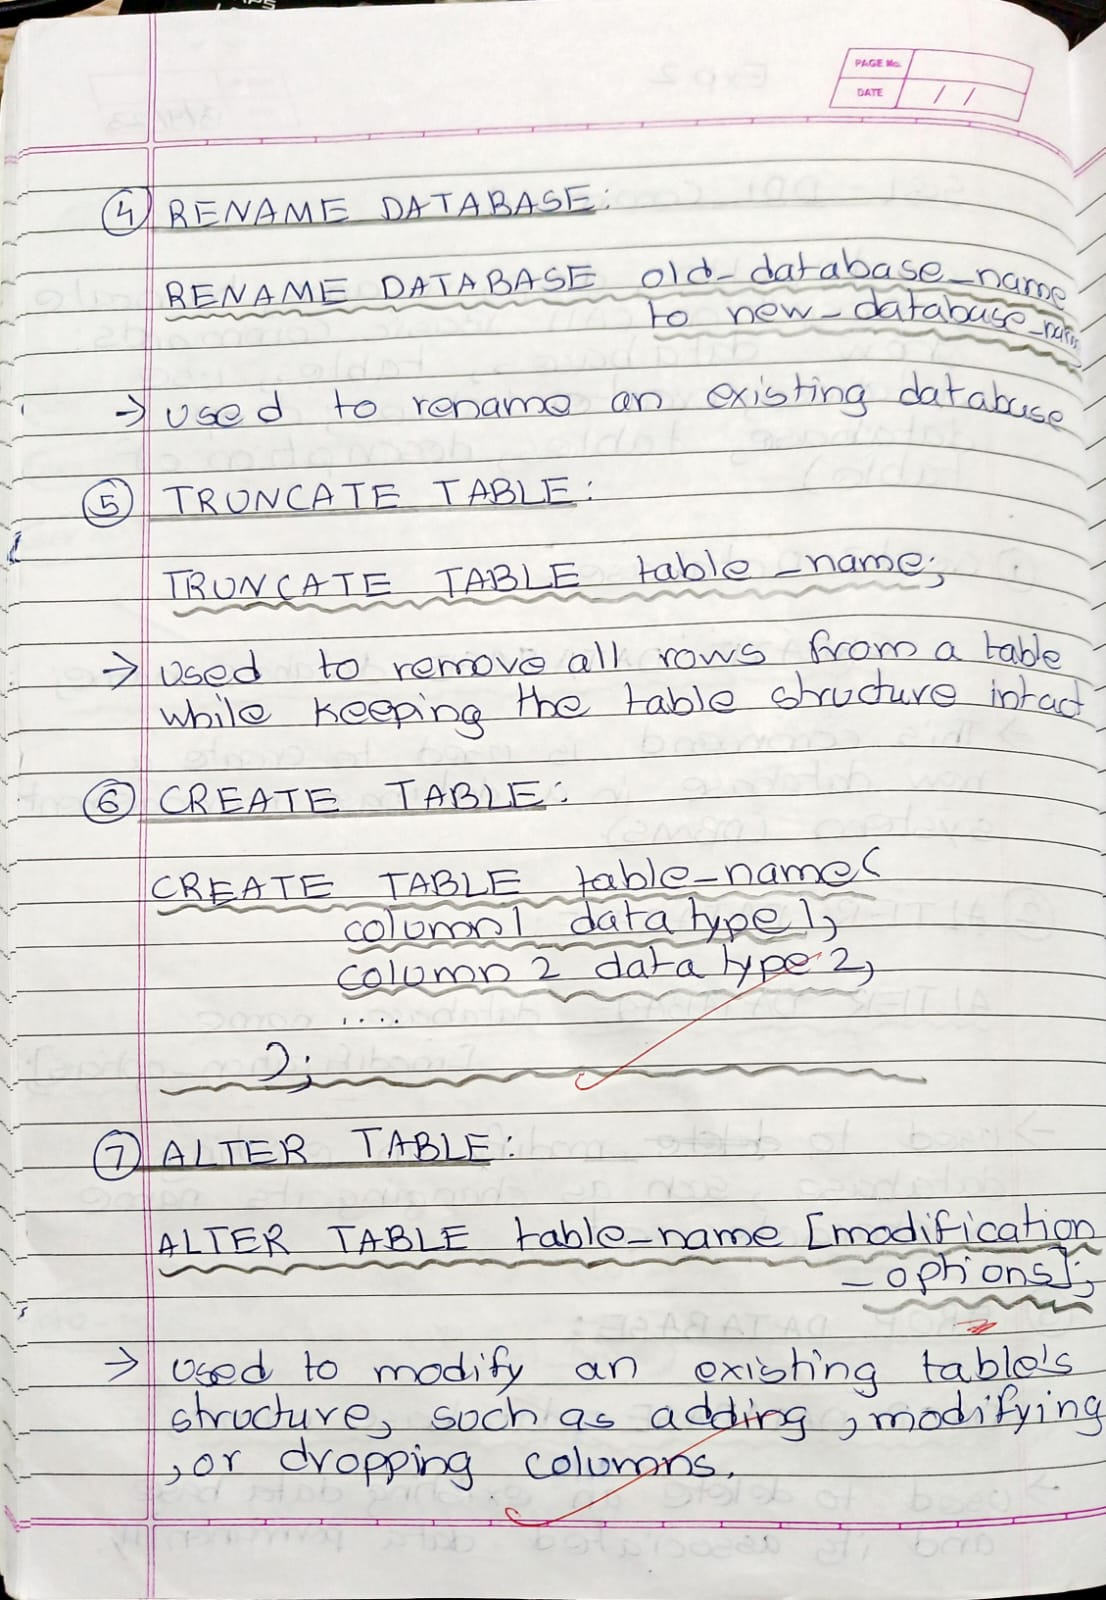 PAGE No.
DATE / /
④ RENAME DATABASE:
RENAME DATABASE old_database_name
to new_database_name
→ Used to rename an existing database
⑤ TRUNCATE TABLE:
TRUNCATE TABLE table_name;
→ Used to remove all rows from a table
while keeping the table structure intact
⑥ CREATE TABLE:
CREATE TABLE table_name(
column1 datatype1,
column2 datatype2,
....
);
⑦ ALTER TABLE:
ALTER TABLE table_name [modification
_options];
→ Used to modify an existing table's
structure, such as adding, modifying
, or dropping columns.